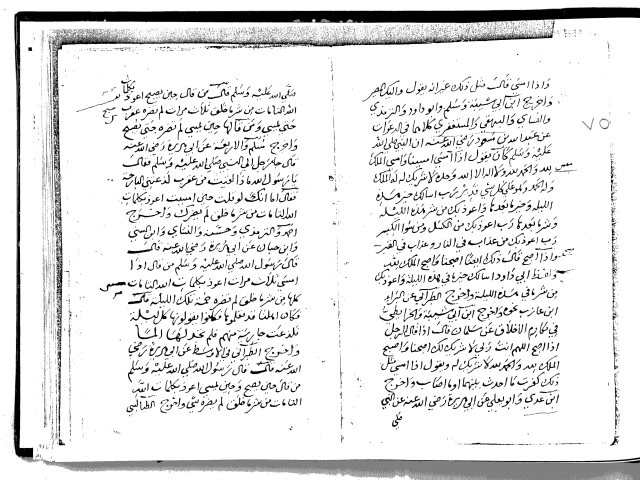 واذا امسى قال مثل ذلك غير انه يقول واليك المصير
واخرج ابن ابي شيبة ومسلم وابو داود والترمذي
والنساي والبيهقي والمستغفري كلاهما في الدعوات
عن عبد الله بن مسعود رضي الله عنه ان النبي صلى الله
عليه وسلم كان يقول اذا امسى امسينا وامسى الملك
لله والحمد لله ولا اله الا الله وحده لا شريك له له الملك
وله الحمد وهو على كل شي قدير رب اسالك خير هذه
الليلة وخير ما بعدها واعوذ بك من شر هذه الليلة
وشر ما بعدها رب اعوذ بك من الكسل وسوء الكبر
رب اعوذ بك من عذاب في النار وعذاب في القبر
واذا اصبح قال ذلك ايضا اصبحنا واصبح الملك لله
ولفظ ابي داود اسالك خير ما في هذه الليلة واعوذ بك
من شر ما في هذه الليلة واخرج الطبراني عن البراء
ابن عازب نحوه واخرج ابن ابي شيبة والخرايطي
في مكارم الاخلاق عن سلمان قال اذا قال الرجل
اذا اصبح اللهم انت ربي لا شريك لك اصبحنا واصبح
الملك لله والحمد لله لا شريك له ويقول اذا امسى مثل
ذلك كفرت ما احدث بينهما واخرج
ابن عدي وابو يعلى عن ابي هريرة رضي الله عنه عن النبي
صلى
٧٥
صلى الله عليه وسلم قال من قال حين يصبح اعوذ بكلمات
الله التامات من شر ما خلق ثلاث مرات لم تضره عقرب
حتى يمسي ومن قالها حين يمسي لم تضره حتى يصبح
واخرج مسلم والاربعة عن ابي هريرة رضي الله عنه
قال جاء رجل الى النبي صلى الله عليه وسلم فقال
يا رسول الله ما لقيت من عقرب لدغتني البارحة
فقال اما انك لو قلت حين امسيت اعوذ بكلمات
الله التامات من شر ما خلق لم تضرك واخرج
احمد والترمذي وحسنه والنساي وابن السني
وابن حبان عن ابي هريرة رضي الله عنه قال
قال رسول الله صلى الله عليه وسلم من قال اذا
امسى ثلاث مرات اعوذ بكلمات الله التامات
كلها من شر ما خلق لم تضره حمة تلك الليلة قال
فكان اهلنا قد تعلموها فكانوا يقولونها كل ليلة
فلدغت جارية منهم فلم تجد لها الما
واخرج الطبراني في الاوسط عن ابي هريرة رضي
الله عنه قال قال رسول الله صلى الله عليه وسلم
من قال حين يصبح وحين يمسي اعوذ بكلمات الله
التامات من شر ما خلق لم يضره شي واخرج